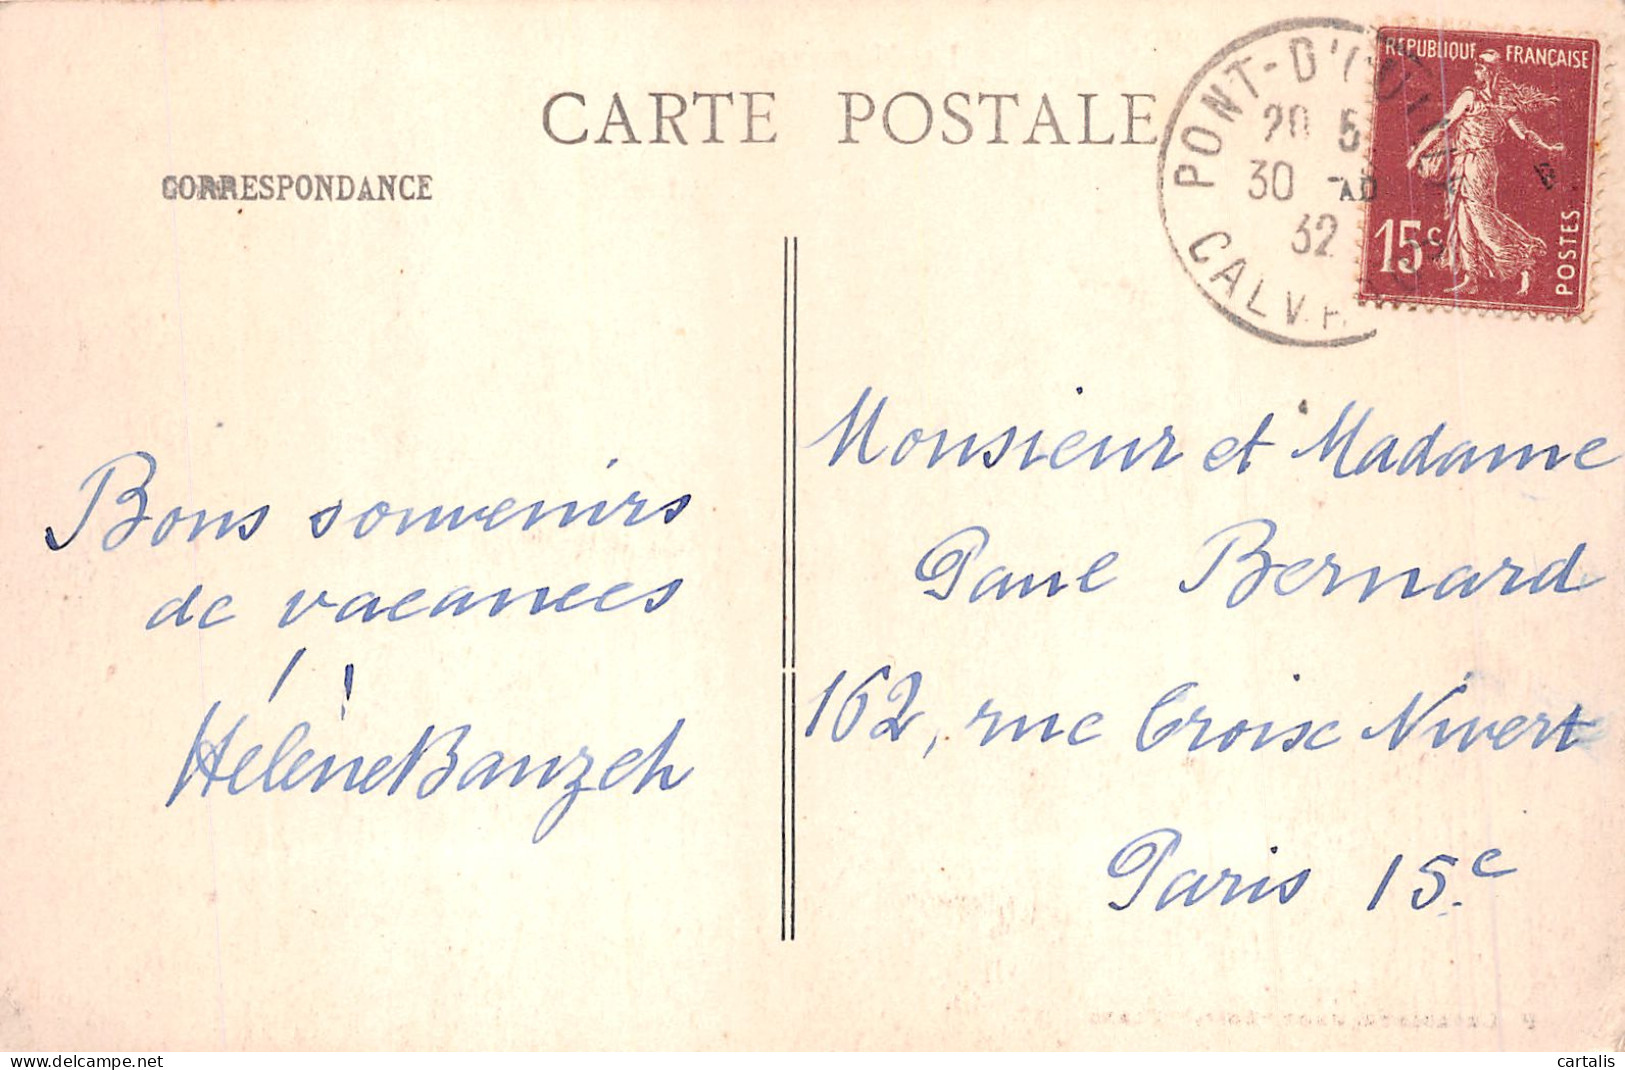 CARTE POSTALE
CORRESPONDANCE
PONT-D'OUILLY
20 5
30 -AD
32
CALVADOS
REPUBLIQUE FRANÇAISE
15c
POSTES
Bons souvenirs
de vacances
!
Hélène Banzeh
Monsieur et Madame
Paul Bernard
162, rue Croix Nivert
Paris 15e
website:delcampe.net
cartalis